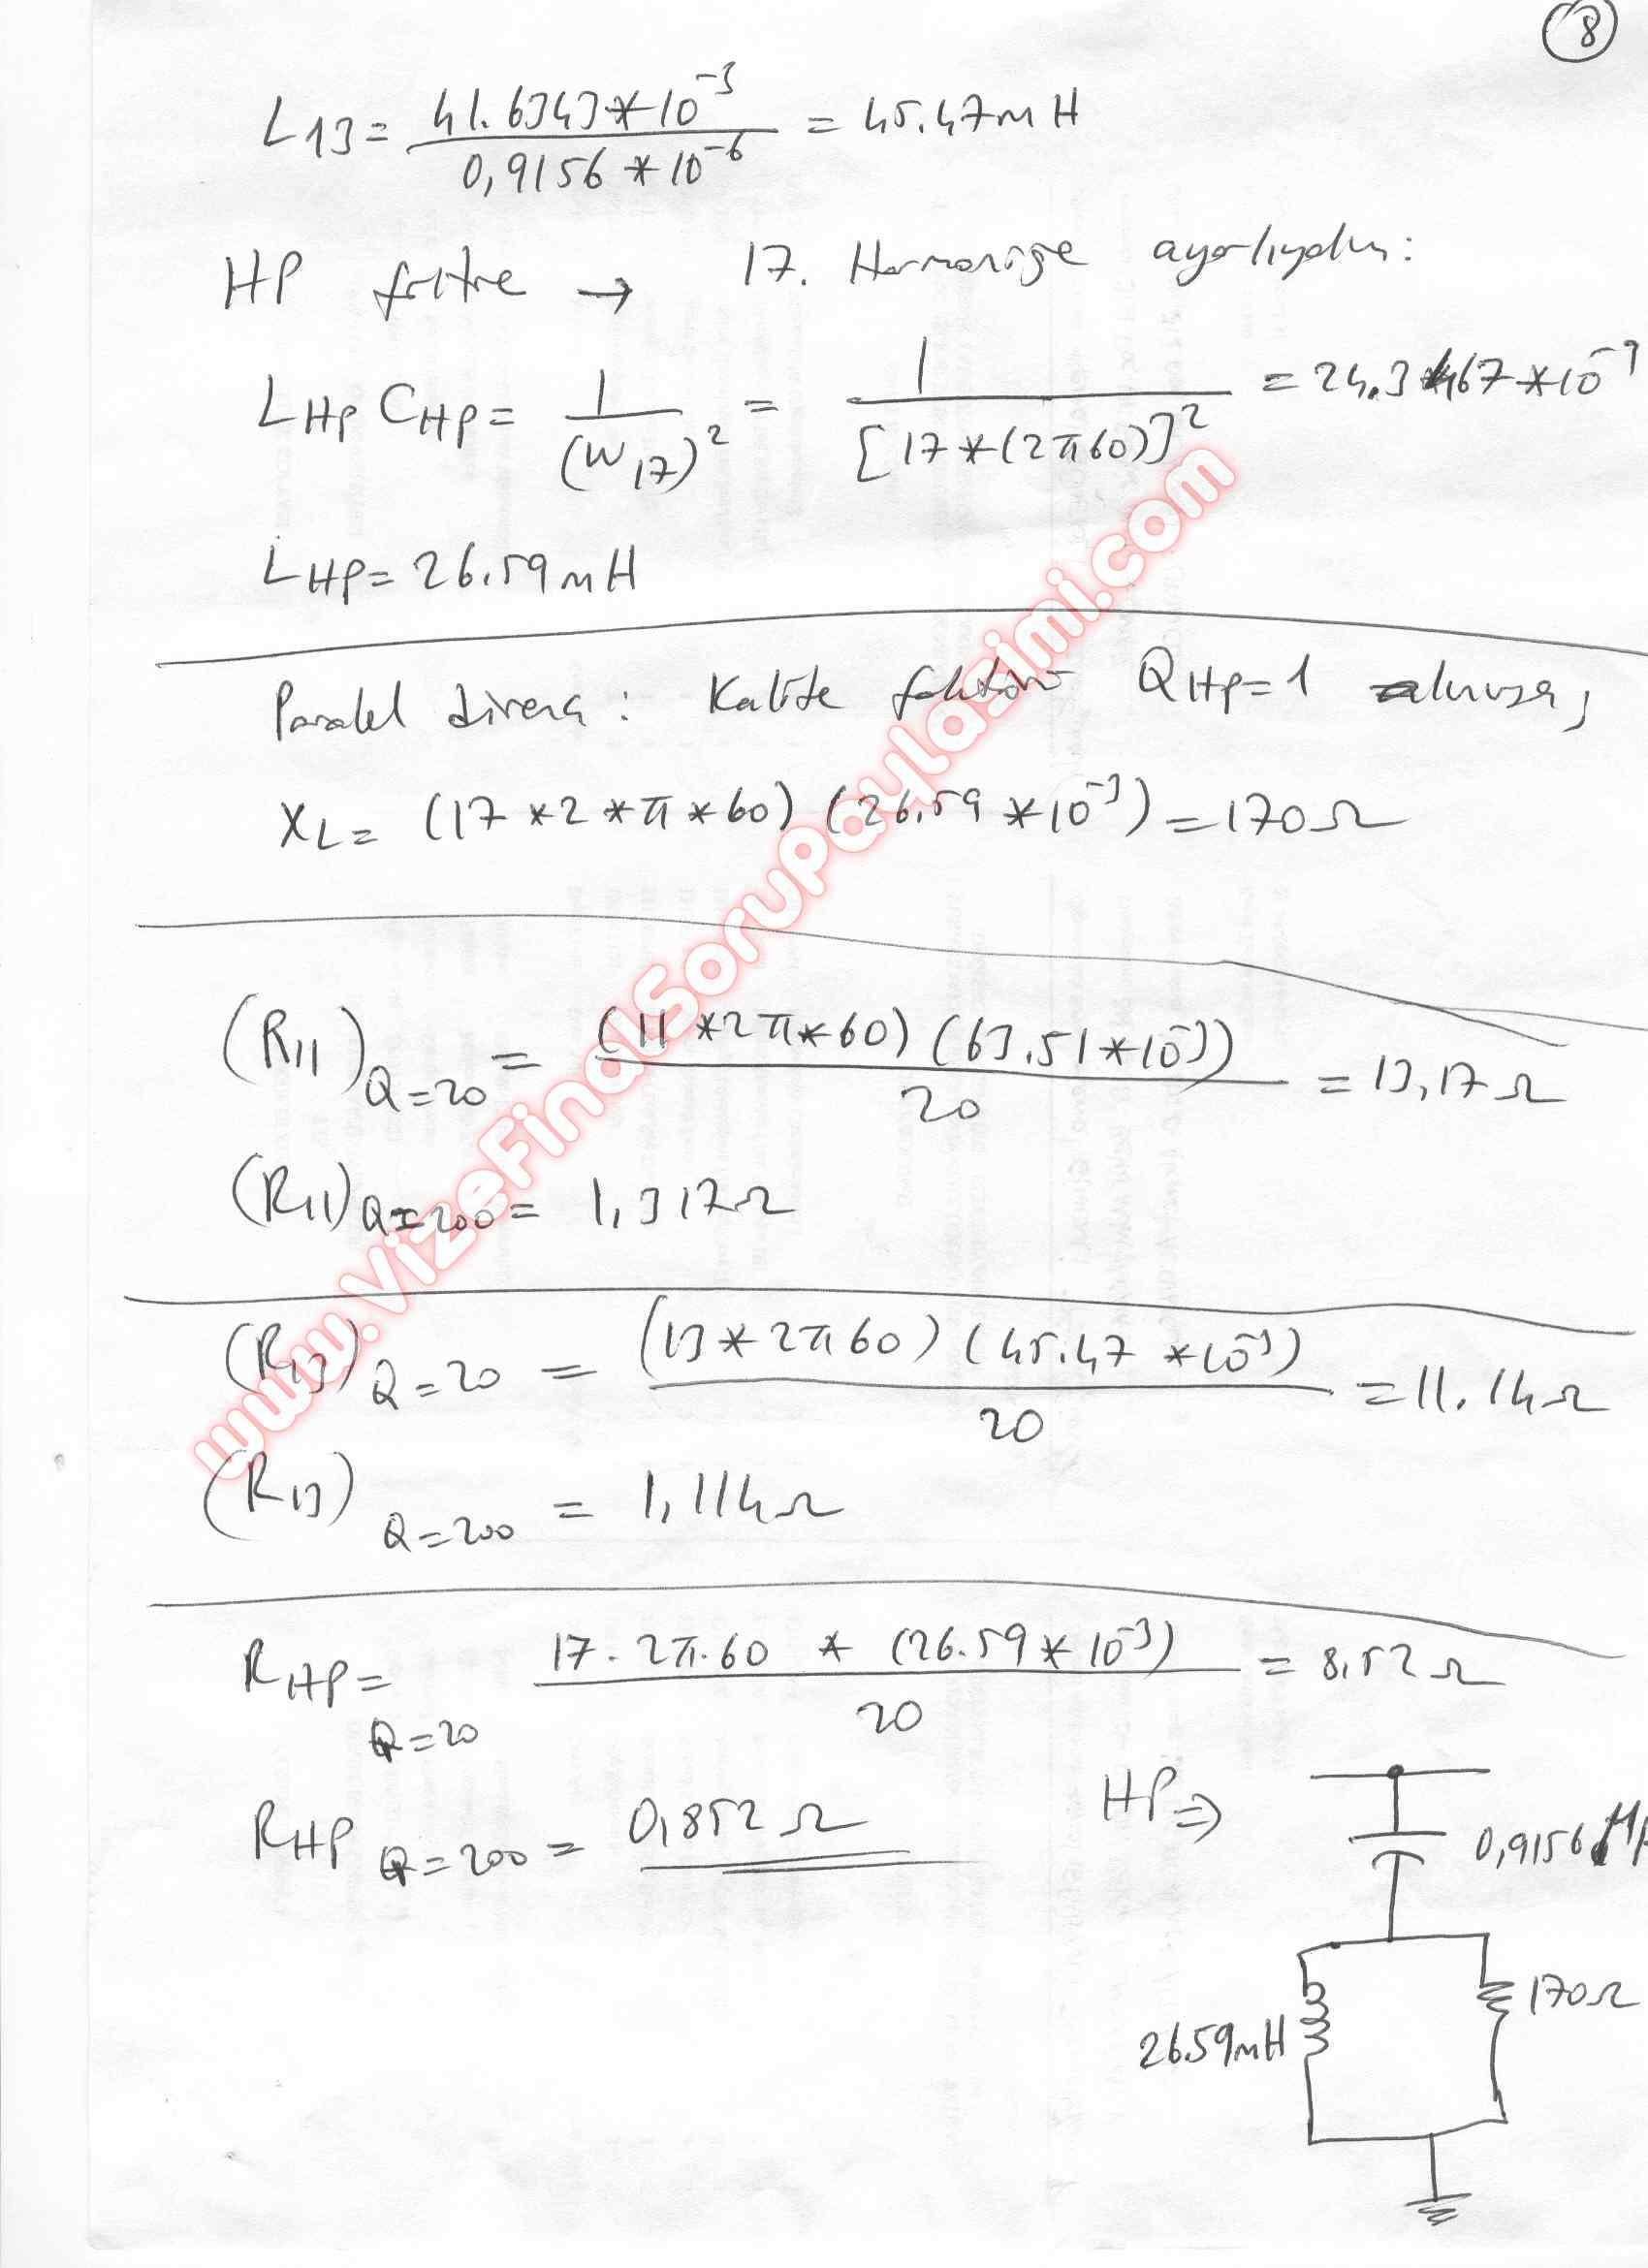 8
L13 = 41.6343*10^-3 / 0,9156*10^-6 = 45.47mH
HP filtre → 17. Harmoniğe ayarlıydın:
LHP CHP = 1 / (W17)^2 = 1 / [17*(2π60)]^2 = 24.3467*10^-3
LHP = 26.59mH
Paralel direnç: Kalite faktörü QHP=1 alınırsa;
XL = (17*2*π*60) (26.59*10^-3) = 170Ω
(R11)Q=20 = (11*2π*60) (63.51*10^-3) / 20 = 13,17Ω
(R11)Q=200 = 1,317Ω
(R13)Q=20 = (13*2π60) (45.47*10^-3) / 20 = 11.14Ω
(R13)Q=200 = 1,114Ω
RHP Q=20 = 17.2π.60 * (26.59*10^-3) / 20 = 8,52Ω
RHP Q=200 = 0,852Ω
HP ⇒
0,9156 μF
170Ω
26.59mH
www.VizeFinalSoruPaylasimi.com